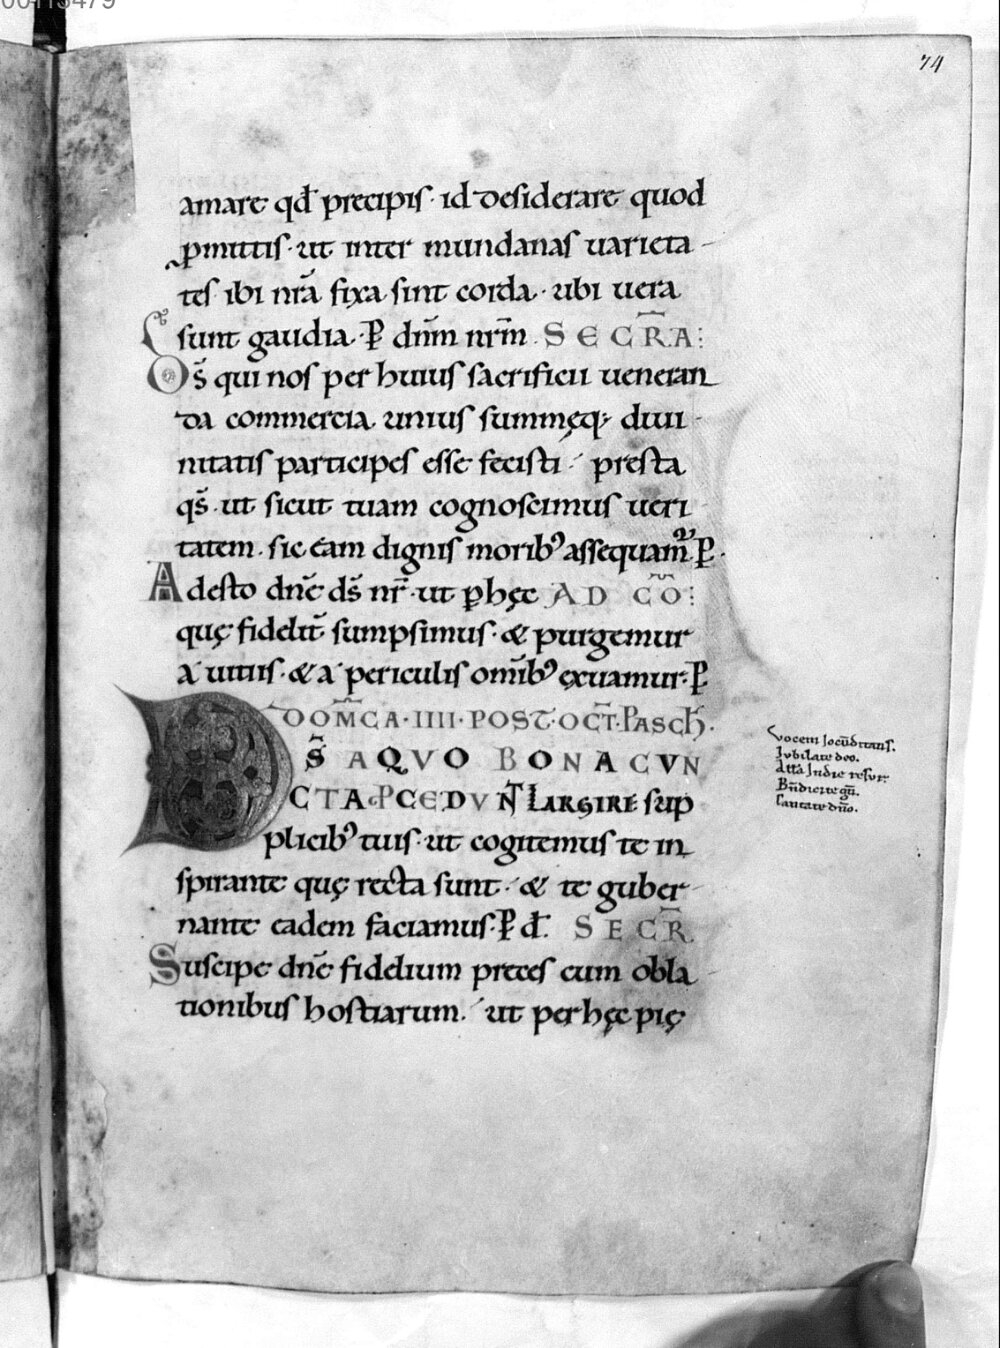 74
amare qđ precipis · id desiderare quod
ꝑmittis · ut inter mundanas uarieta
tes ibi nr̄a fixa sint corda · ubi uera
sunt gaudia · P̱ dn̄m nr̄m . SECR̄A:
Ds̄ qui nos per huius sacrificii ueneran
da commercia unius summęq; diui
nitatis participes esse fecisti · presta
qs̄ · ut sicut tuam cognoscimus ueri
tatem · sic eam dignis moribꝰ assequam̄ · P̱ ·
Adesto dn̄e ds̄ nr̄ · ut ꝑ hęc AD CŌ:
quę fidelit̄ sumpsimus · & purgemur
a uitiis · & a periculis om̄ibꝰ exuamur · P̱
DOM̄CA · IIII · POST · OCT̄ · PASCħ ·
DS̄ A QVO BONA CVN
CTA PCEDVNT̄ LARGIRE sup
plicibꝰ tuis · ut cogitemus te in
spirante quę recta sunt · & te guber
nante eadem faciamus · P̱ đ. SECR̄
Suscipe dn̄e fidelium preces cum obla
tionibus hostiarum · ut per hęc pię
Vocem Iocūd̄ trans̄.
Iubilate deo.
Bn̄dicite gn̄.
Cantate dn̄o.